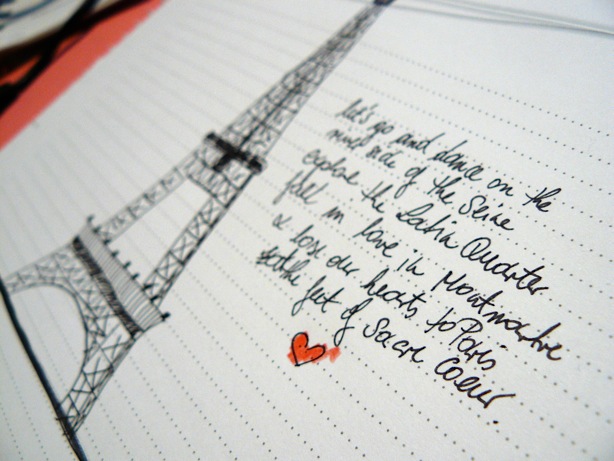 let's go and dance on the
side of the Seine
explore the Latin Quarter
fall in love in Montmartre
& lose our hearts to Paris
at the feet of Sacre Coeur.